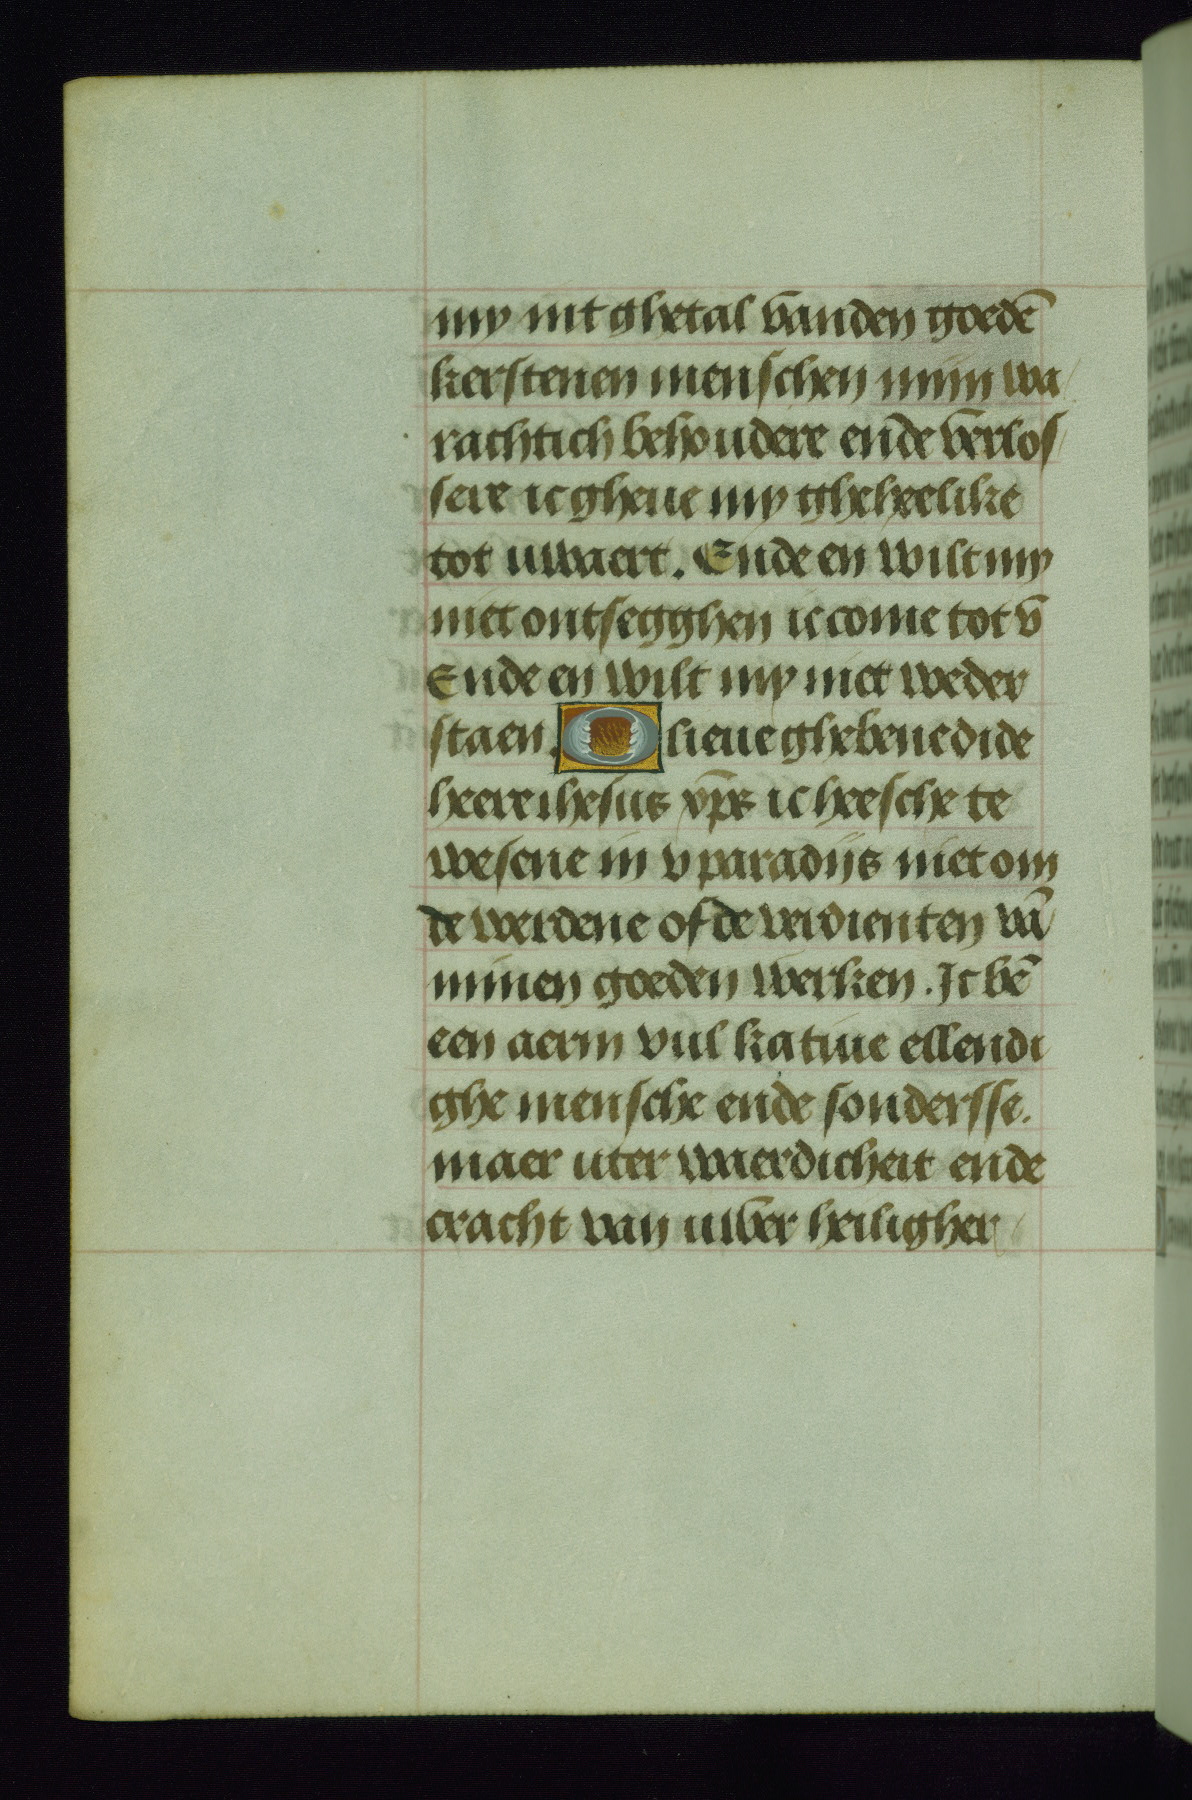 my int ghetal vanden goedē
kerstenen menschen mijn wa
rachtich behoudere ende verlos
sere ic gheue my gheheelike
tot uwaert. Ende en wilt my
niet ontsegghen ic come tot v
Ende en wilt my niet weder
staen. O lieue ghebenedide
heere ihesus xp̄s ic heesche te
wesene in v paradijs niet om
de werdene of de verdienten vā
minen goeden werken. Ic bē
een aerm vul katiue ellendi
ghe mensche ende sondersse.
maer uter waerdicheit ende
cracht van uwer heiligher